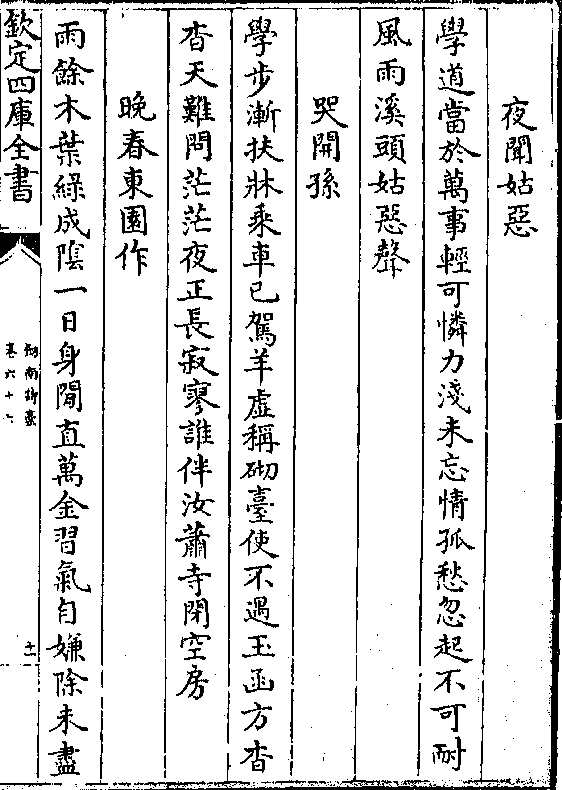 夜聞姑惡
學道當於萬事輕可憐力淺未忘情孤愁忽起不可耐
風雨溪頭姑惡聲
哭開孫
學步漸扶牀乗車已駕羊虚稱砌臺使不遇玉函方杳
杳天難問茫茫夜正長寂寥誰伴汝蕭寺閉空房
晩春東園作
雨餘木葉緑成陰一日身閒直萬金習氣自嫌除未盡
欽定四庫全書
劒南詩藁
卷六十六
十一